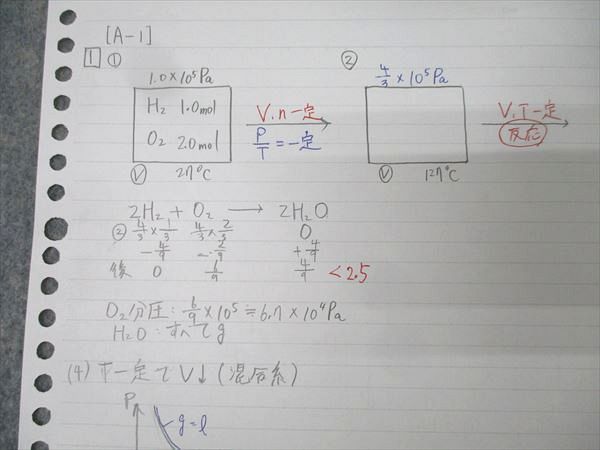 [A-1]
1 ①
1.0×10⁵Pa
H₂ 1.0mol
O₂ 2.0mol
V 27°C
V.n一定
P/T=一定
②
4/3×10⁵Pa
V 127°C
V.T一定
反応
2H₂+O₂→2H₂O
② 4/3×1/3 4/3×2/3 0
-4/9 -2/9 +4/9
後 0 6/9 4/9 <2.5
O₂分圧:6/9×10⁵≒6.7×10⁴Pa
H₂O:すべてg
(4) T一定でV↓(混合系)
P
g=l